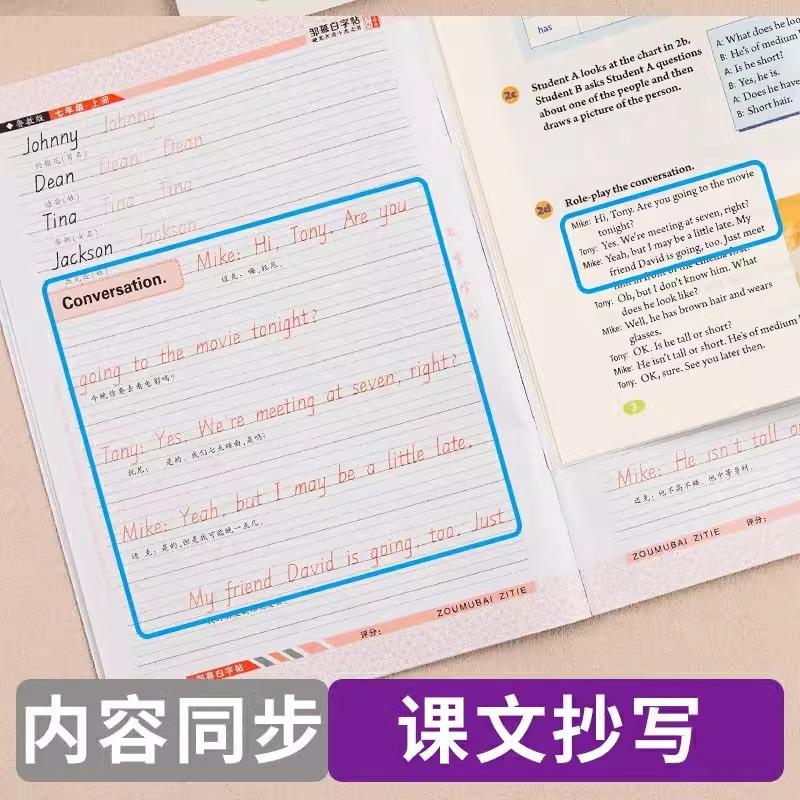 邹慕白字帖
鲁教版 七年级·上册
Johnny Johnny
Dean Dean Dean
Tina Tina Tina
Jackson Jackson
Conversation.
Mike: Hi, Tony. Are you
迈克：嗨,托尼。
going to the movie tonight?
今晚你要去看电影吗?
Tony: Yes. We're meeting at seven, right?
托尼： 是的。我们七点碰面,是吗?
Mike: Yeah, but I may be a little late.
迈克：是的,但是我可能晚一点儿。
My friend David is going, too. Just
评分:
ZOUMUBAI ZITIE
邹慕白字帖
has
2c
Student A looks at the chart in 2b.
Student B asks Student A questions
about one of the people and then
draws a picture of the person.
A: What does he loo
B: He's of medium
A: Is he short?
B: Yes, he is.
A: Does he have
B: Short hair.
2d
Role-play the conversation.
Mike: Hi, Tony. Are you going to the movie
tonight?
Tony: Yes. We're meeting at seven, right?
Mike: Yeah, but I may be a little late. My
friend David is going, too. Just meet
in front of the cinema first.
Tony: Oh, but I don't know him. What
does he look like?
Mike: Well, he has brown hair and wears
glasses.
Tony: OK. Is he tall or short?
Mike: He isn't tall or short. He's of medium
Tony: OK, sure. See you later then.
2
Mike: He isn't tall o
迈克：他不高不矮。他中等身材。
ZOUMUBAI ZITIE
评分:
内容同步
课文抄写